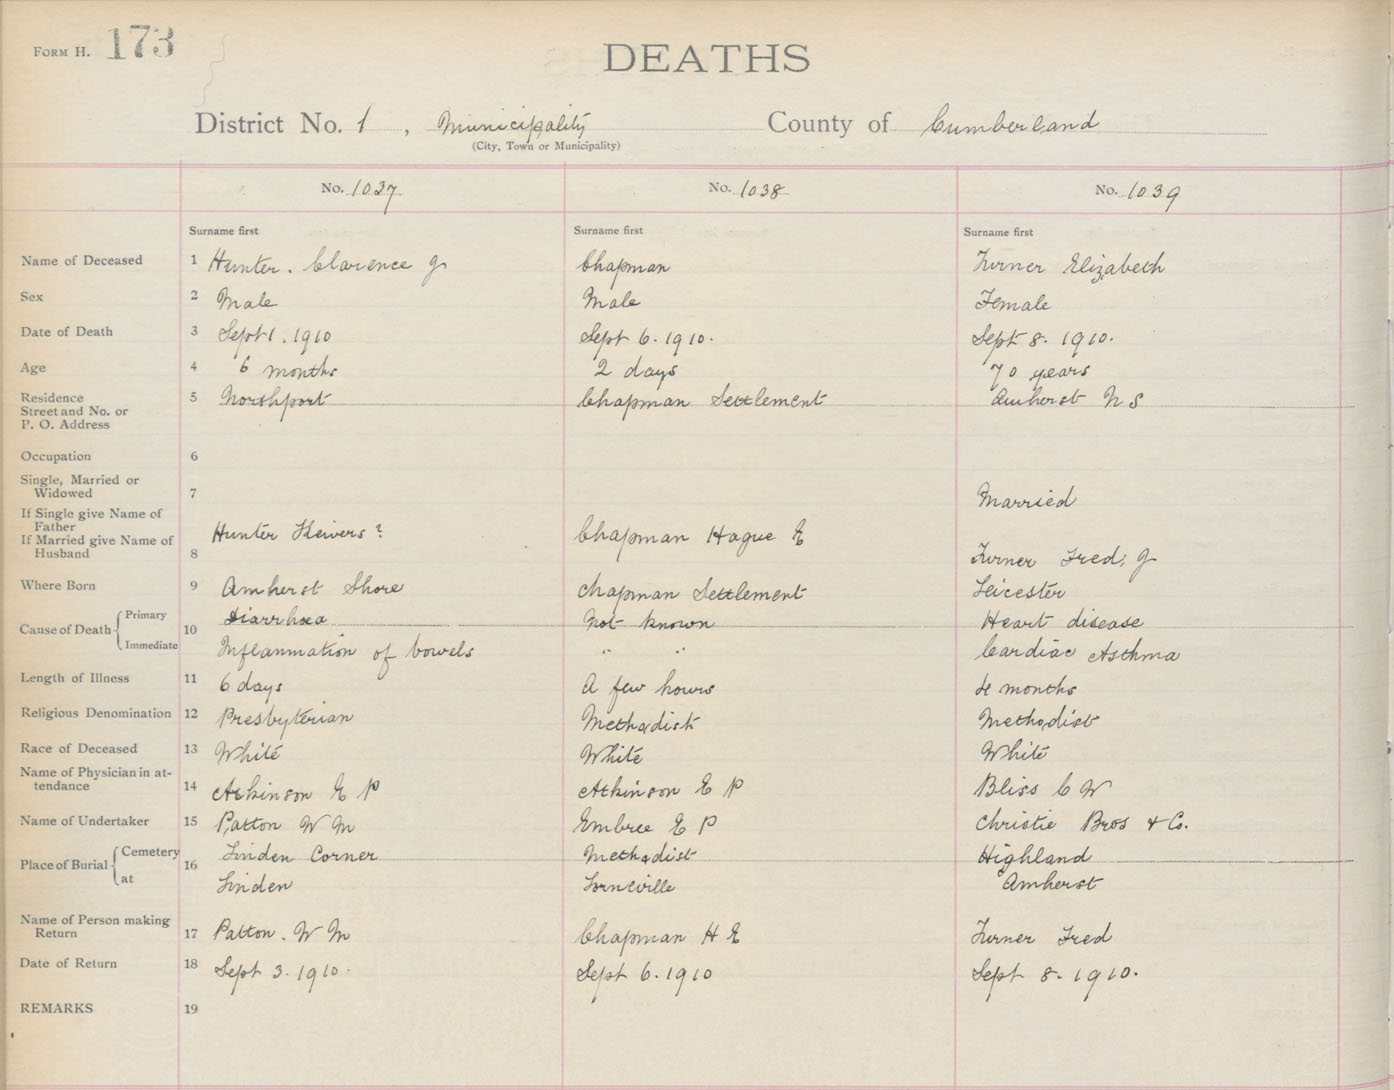 FORM H. 173
DEATHS
District No. 1, Municipality County of Cumberland
(City, Town or Municipality)
No. 1037 No. 1038 No. 1039
Surname first Surname first Surname first
Name of Deceased 1 Hunter. Clarence J Chapman Turner Elizabeth
Sex 2 Male Male Female
Date of Death 3 Sept 1. 1910 Sept 6. 1910. Sept 8. 1910.
Age 4 6 months 2 days 70 years
Residence 5 Northport Chapman Settlement Amherst N S
Street and No. or
P. O. Address
Occupation 6
Single, Married or
Widowed 7 Married
If Single give Name of
Father Hunter ? Chapman Hague E
If Married give Name of
Husband 8 Turner Fred. J
Where Born 9 Amherst Shore Chapman Settlement Leicester
Cause of Death Primary 10 Diarrhœa Not known Heart disease
Immediate Inflammation of bowels " " Cardiac Asthma
Length of Illness 11 6 days A few hours 4 months
Religious Denomination 12 Presbyterian Methodist Methodist
Race of Deceased 13 White White White
Name of Physician in at-
tendance 14 Atkinson E P Atkinson E P Bliss C W
Name of Undertaker 15 Patton W M Embree E P Christie Bros & Co.
Place of Burial Cemetery 16 Linden Corner Methodist Highland
at Linden Lorneville Amherst
Name of Person making
Return 17 Patton. W M Chapman H E Turner Fred
Date of Return 18 Sept 3. 1910. Sept 6. 1910 Sept 8. 1910.
REMARKS 19